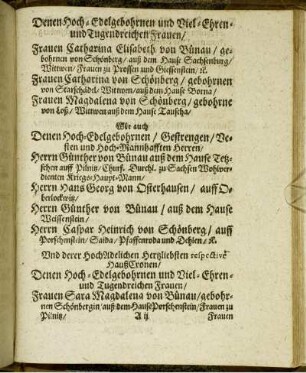 Denen Hoch-Edelgebohrnen und Viel-Ehren-
und Tugendreichen Frauen/
Frauen Catharina Elisabeth von Bünau/ ge-
bohrnen von Schönberg/ auß dem Hause Sachsenburg/
Wittwen/ Frauen zu Prossen und Giesenstein/ ꝛc.
Frauen Catharina von Schönberg/ gebohrnen
von Starschädel/ Wittwen/ auß dem Hause Borna/
Frauen Magdalena von Schönberg/ gebohrne
von Loß/ Wittwen auß dem Hause Tauscha/
Wie auch
Denen Hoch-Edelgebohrnen/ Gestrengen/ Ve-
sten und Hoch-Mannhafften Herren/
Herrn Günther von Bünau auß dem Hause Tetz-
schen auff Pünitz/ Churf. Durchl. zu Sachsen Wohlver-
dienten Krieges-Haupt-Mann/
Herrn Hans Georg von Osterhausen/ auff O-
berlockwitz/
Herrn Günther von Bünau/ auß dem Hause
Weissenstein/
Herrn Caspar Heinrich von Schönberg/ auff
Porschenstein/ Saida/ Pfaffenroda und Dehlen/ ꝛc.
Und derer HochAdelichen Hertzliebsten respectivè
HaußCronen/
Denen Hoch-Edelgebohrnen und Viel-Ehren-
und Tugendreichen Frauen/
Frauen Sara Magdalena von Bünau/ gebohr-
nen Schönbergin/ auß dem Hause Porschenstein/ Frauen zu
Pünitz/ A ij Frauen